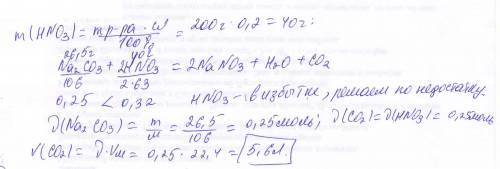 m(HNO₃) = mр-ра · ω / 100% = 200г · 0,2 = 40г;
26,5г 40г
Na₂CO₃ + 2HNO₃ = 2NaNO₃ + H₂O + CO₂
106 2·63
0,25 < 0,32 HNO₃ – в избытке, решаем по недостатку.
ν(Na₂CO₃) = m/M = 26,5/106 = 0,25моль; ν(CO₂) = ν(HNO₃) = 0,25моль
V(CO₂) = ν · Vm = 0,25 · 22,4 = 5,6л.